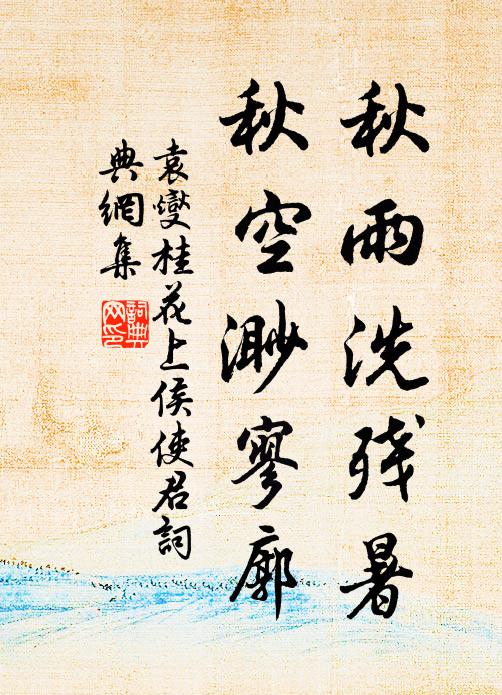 秋雨洗残暑
秋空渺寥廓
袁燮桂花上侯使君詞
典網集
詞典网印